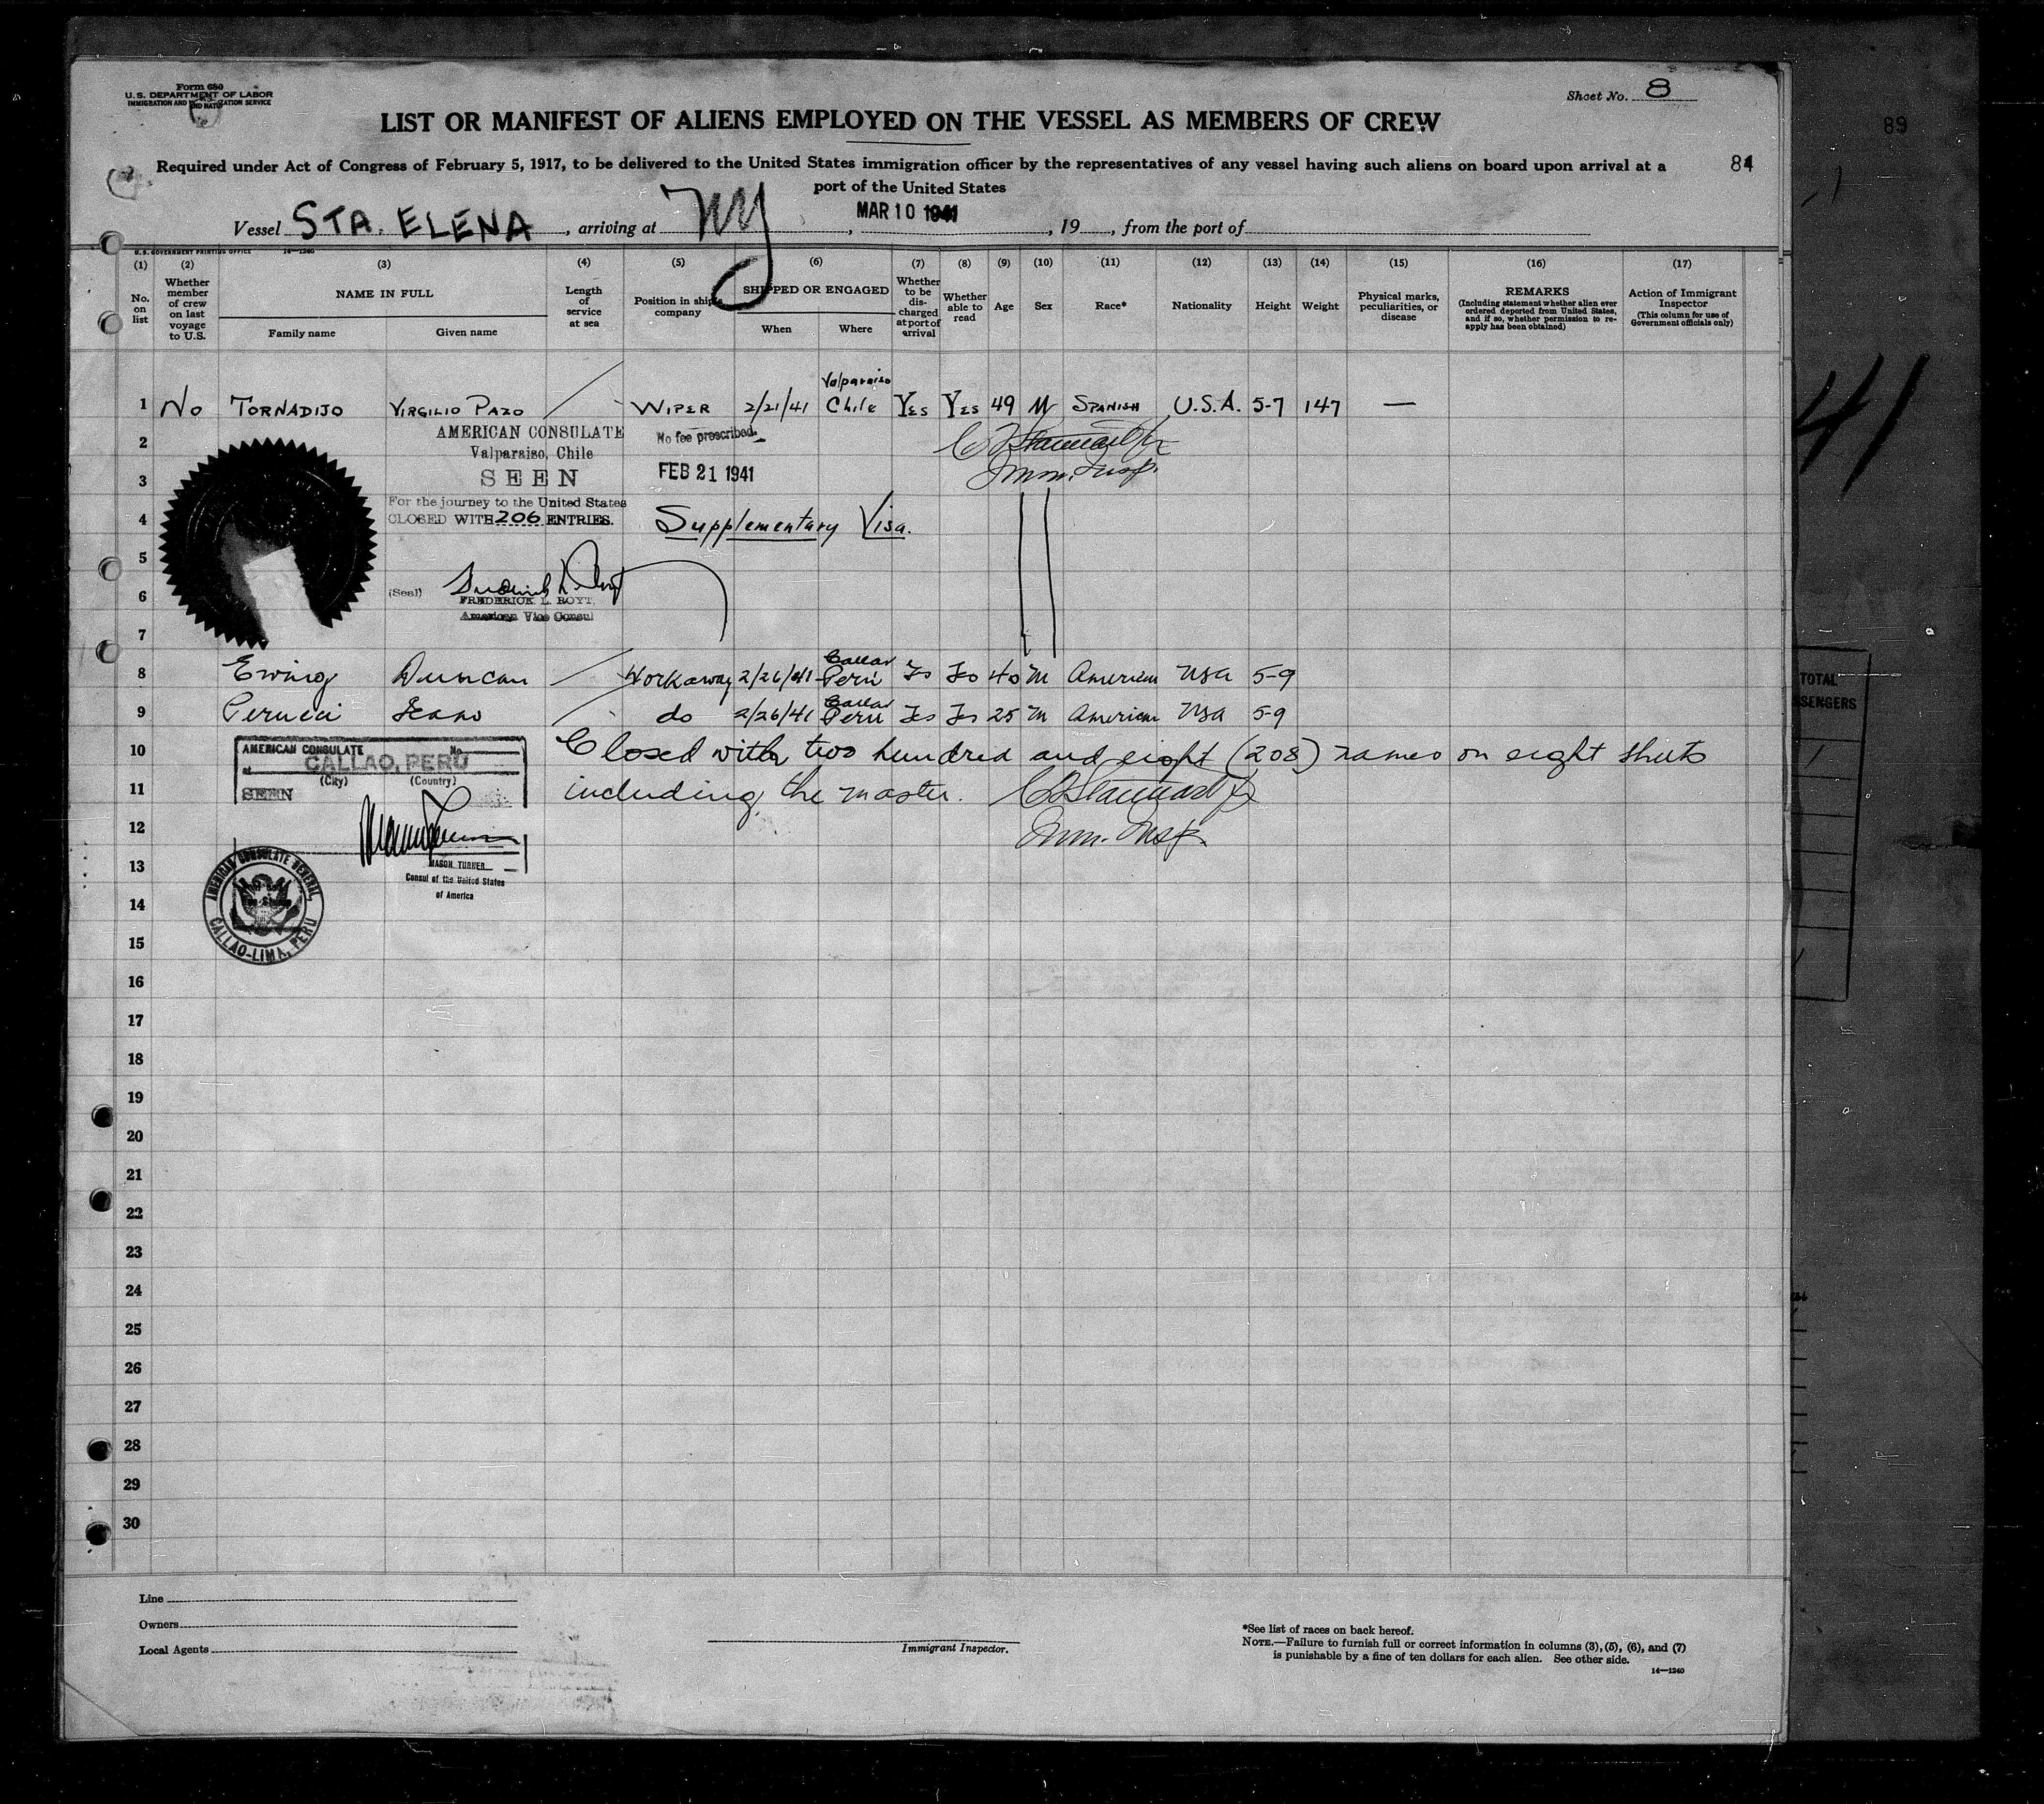 Form 680
U.S. DEPARTMENT OF LABOR
IMMIGRATION AND NATURALIZATION SERVICE
Sheet No. 8
LIST OR MANIFEST OF ALIENS EMPLOYED ON THE VESSEL AS MEMBERS OF CREW
89
Required under Act of Congress of February 5, 1917, to be delivered to the United States immigration officer by the representatives of any vessel having such aliens on board upon arrival at a
port of the United States
84
Vessel STA. ELENA, arriving at NY, MAR 10 1941, 19, from the port of
U.S. GOVERNMENT PRINTING OFFICE 14—1240
(1) (2) (3) (4) (5) (6) (7) (8) (9) (10) (11) (12) (13) (14) (15) (16) (17)
No. on list
Whether member of crew on last voyage to U.S.
NAME IN FULL
Family name Given name
Length of service at sea
Position in ship's company
SHIPPED OR ENGAGED
When Where
Whether to be discharged at port of arrival
Whether able to read
Age
Sex
Race*
Nationality
Height
Weight
Physical marks, peculiarities, or disease
REMARKS
(Including statement whether alien ever ordered deported from United States, and if so, whether permission to reapply has been obtained)
Action of Immigrant Inspector
(This column for use of Government officials only)
1 No TORNADIJO VIRGILIO PAZO WIPER 2/21/41 Valparaiso Chile YES YES 49 M SPANISH U.S.A. 5-7 147 —
41
2
AMERICAN CONSULATE
Valparaiso, Chile
SEEN
For the journey to the United States
CLOSED WITH 206 ENTRIES.
No fee prescribed.
FEB 21 1941
Imm. Insp.
3
4
Supplementary Visa.
5
6
(Seal)
FREDERICK L. ROYT
American Vice Consul
7
8 Ewing Duncan Workaway 2/26/41 Callao Peru Yes Yes 40 M American USA 5-9
9 Perucci do 2/26/41 Callao Peru Yes Yes 25 M American USA 5-9
TOTAL
SSENGERS
10 Closed with two hundred and eight (208) names on eight sheets
11 including the master.
12 Imm. Insp.
AMERICAN CONSULATE No
at CALLAO, PERU
(City) (Country)
SEEN
MASON TURNER
Consul of the United States
of America
AMERICAN CONSULATE GENERAL,
CALLAO-LIMA, PERU
13
14
15
16
17
18
19
20
21
22
23
24
25
26
27
28
29
30
Line
Owners
Local Agents
Immigrant Inspector.
*See list of races on back hereof.
NOTE.—Failure to furnish full or correct information in columns (3), (5), (6), and (7)
is punishable by a fine of ten dollars for each alien. See other side.
14—1240